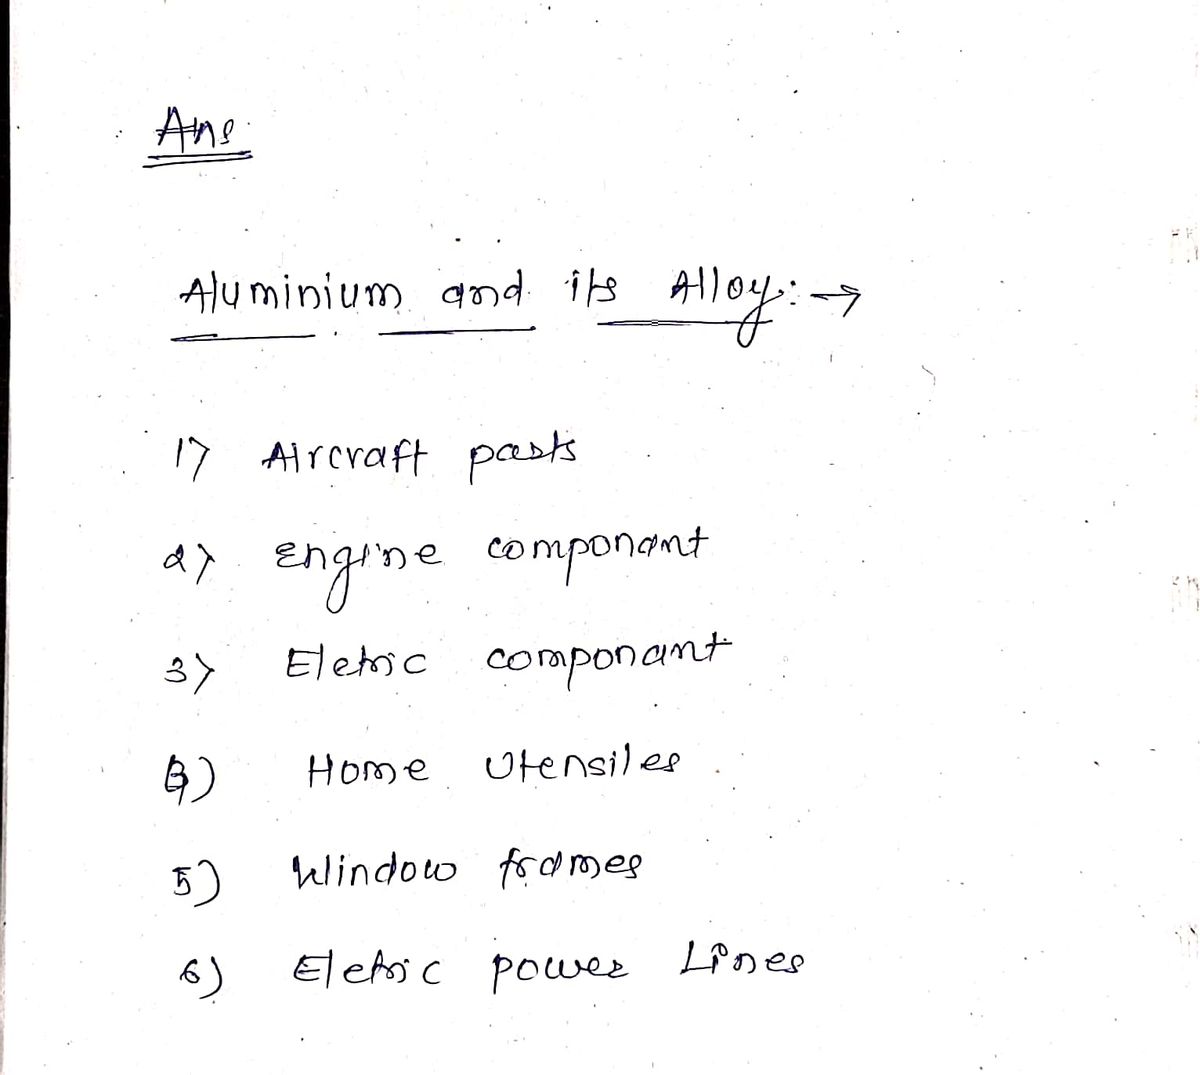 Ans
Aluminium and its Alloy:→
1> Aircraft parts
2> Engine componant
3> Eletric componant
4) Home Utensiles
5) Window frames
6) Eletric power Lines